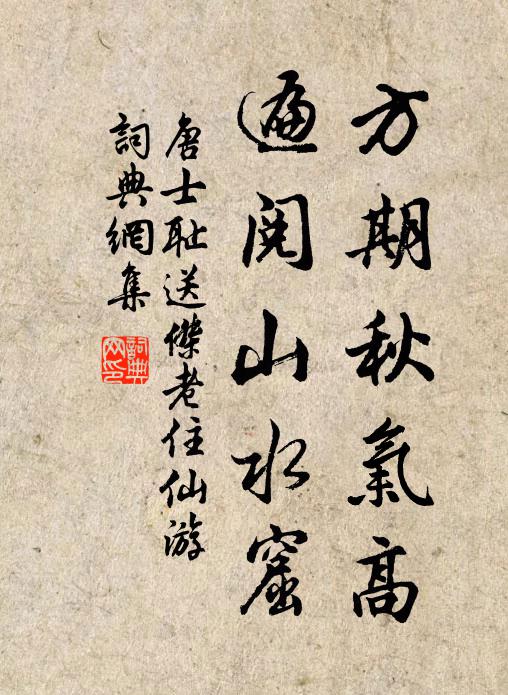 方期秋氣高
遍閱山水窟
唐士耻送傑老住仙游
詞典網集
詞典網印